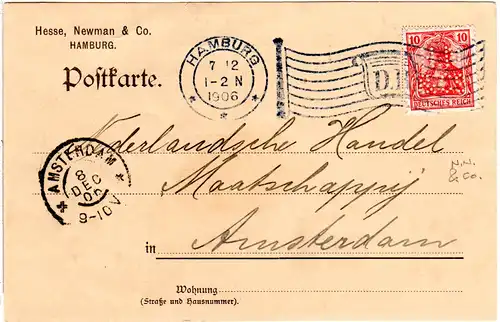 Hesse, Newman & Co.
HAMBURG.
Postkarte.
HAMBURG
7 12
1-2 N
1906
* * *
D.R.
10 10
DEUTSCHES REICH
Nederlandsche Handel
Maatschappij
N.N.
& Co.
AMSTERDAM
8
DEC
06
9-10V
in Amsterdam
Wohnung
(Straße und Hausnummer).